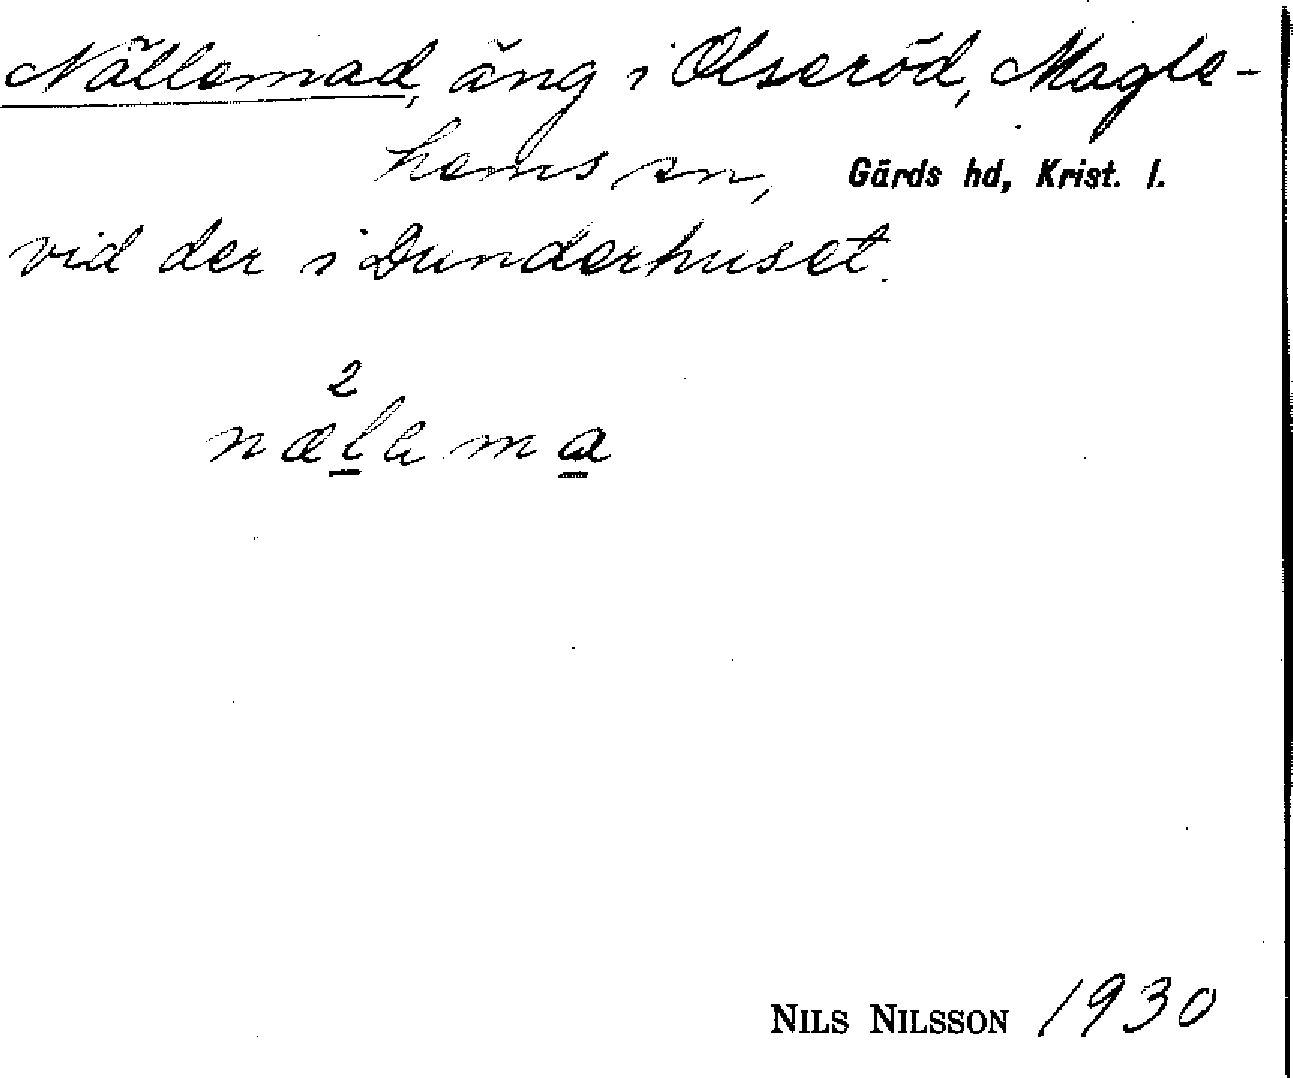 Nällemad, äng i Olseröd, Magle-
hems sn, Gärds hd, Krist. l.
vid der i Dunderhuset.
2
nælama
NILS NILSSON 1930